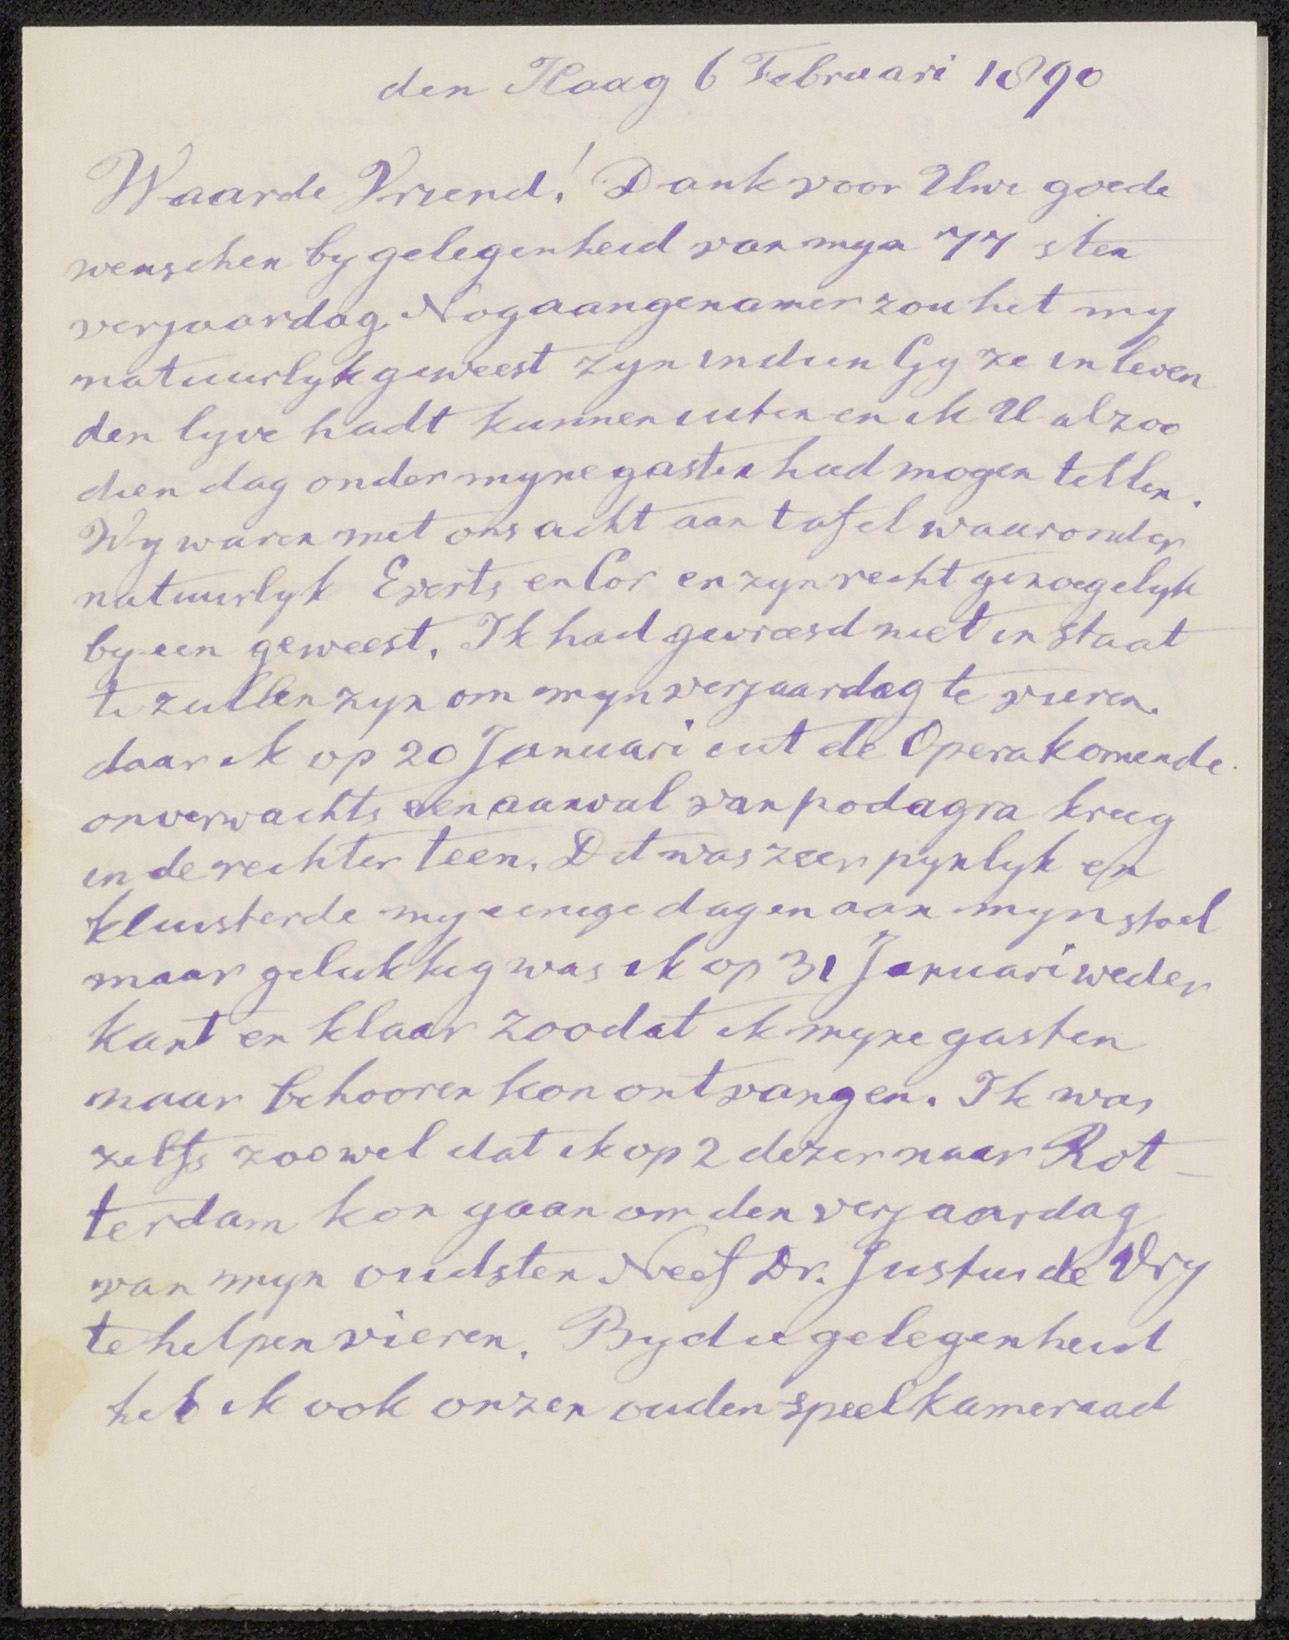 den Haag 6 Februari 1890
Waarde Vriend! Dank voor Uwe goede
wenschen by gelegenheid van myn 77 sten
verjaardag. Nog aangenamer zou het my
natuurlyk geweest zyn indien Gy ze in leven
den lyve hadt kunnen uiten en ik U alzoo
dien dag onder myne gasten had mogen tellen.
Wy waren met ons acht aan tafel waaronder
natuurlyk Everts en Cor en zyn recht genoegelyk
by een geweest. Ik had gevreesd niet in staat
te zullen zyn om myn verjaardag te vieren.
daar ik op 20 Januari uit de Opera komende
onverwachts een aanval van podagra kreeg
in de rechter teen. Dit was zeer pynlyk en
kluisterde my eenige dagen aan myn stoel
maar gelukkig was ik op 31 Januari weder
kant en klaar zoodat ik myne gasten
naar behooren kon ontvangen. Ik was
zelfs zoo wel dat ik op 2 dezer naar Rot-
terdam kon gaan om den verjaardag
van myn oudsten Neef Dr. Justus de Vry
te helpen vieren. By die gelegenheid
heb ik ook onzen ouden speelkameraad